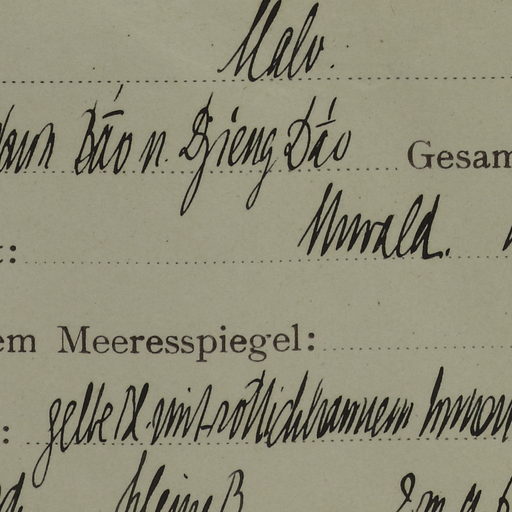 Malv.
Dáo n. Djieng Dáo Gesam
Urwald.
em Meeresspiegel:
: gelbe Bl. mit rötlichbraunem
kleine B